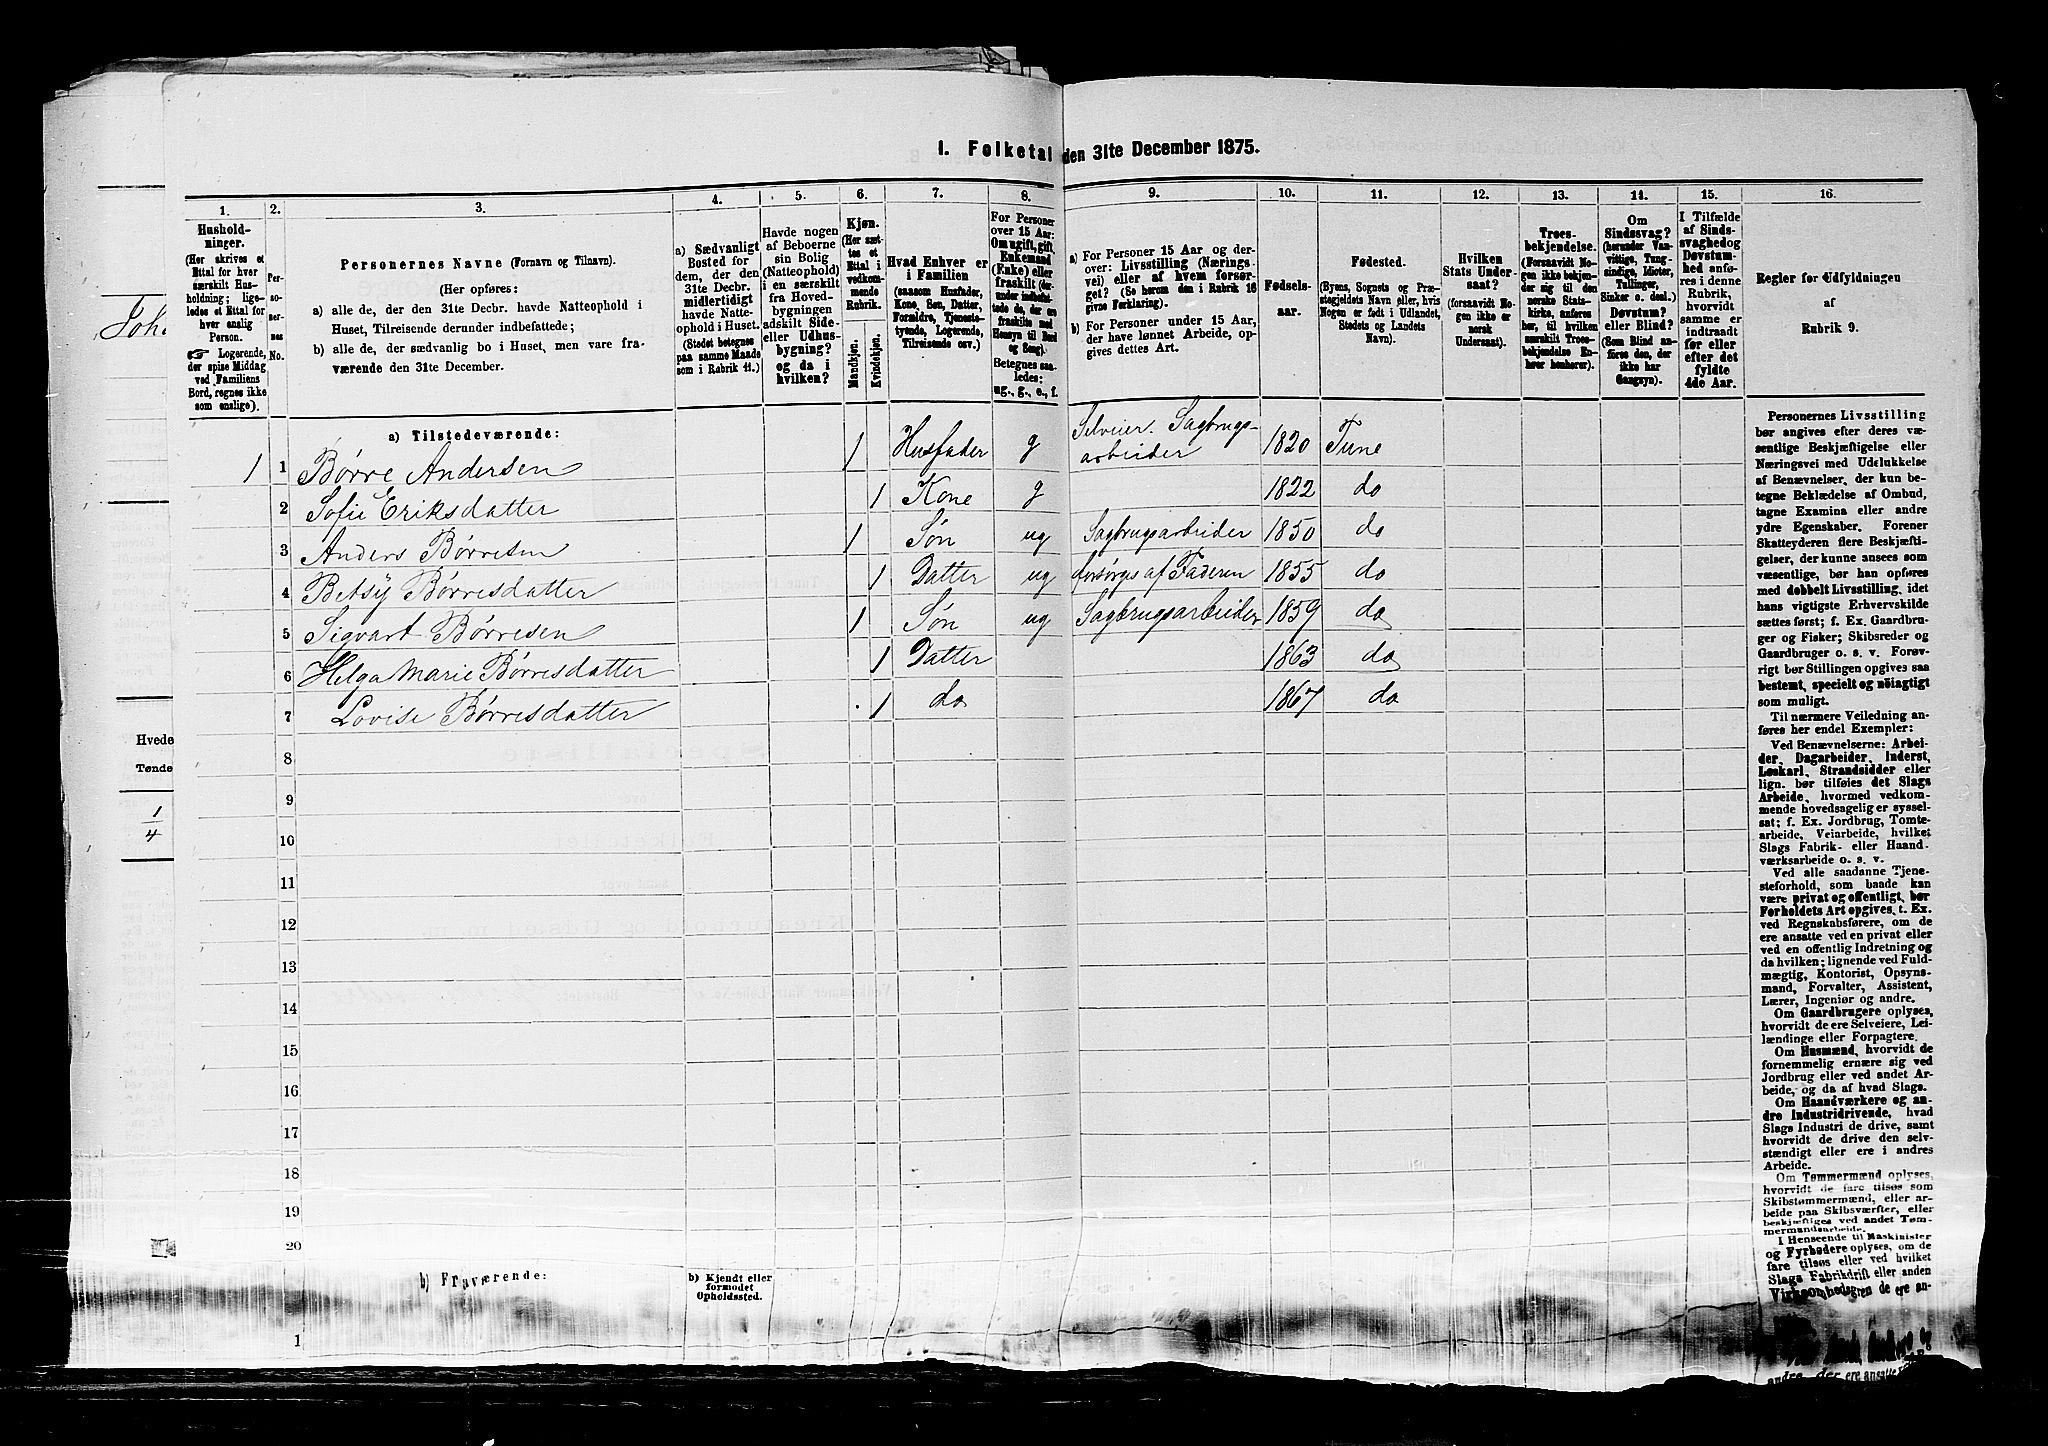 I. Folketal den 31te December 1875.
1. 2. 3. 4. 5. 6. 7. 8. 9. 10. 11. 12. 13. 14. 15. 16.
Hushold-
ninger.
(Her skrives et
Ettal for hver
særskilt Hus-
holdning; lige-
ledes et Ettal for
hver enslig
Person.
☛ Logerende,
der spise Middag
ved Familiens
Bord, regnes ikke
som enslige).
Per-
so-
ner-
nes
No.
Personernes Navne (Fornavn og Tilnavn).
(Her opføres:
a) alle de, der den 31te Decbr. havde Natteophold i
Huset, Tilreisende derunder indbefattede;
b) alle de, der sædvanlig bo i Huset, men vare fra-
værende den 31te December.
a) Sædvanligt
Bosted for
dem, der den
31te Decbr.
midlertidigt
havde Natte-
ophold i Huset.
(Stedet betegnes
paa samme Maade
som i Rubrik 11.)
Havde nogen
af Beboerne
sin Bolig
(Natteophold)
i en særskilt
fra Hoved-
bygningen
adskilt Side-
eller Udhus-
bygning?
og da i
hvilken?
Kjøn.
(Her sæt-
tes et
Ettal i
vedkom-
mende
Rubrik.
Mandkjøn.
Kvindekjøn.
Hvad Enhver er
i Familien
(saasom Husfader,
Kone, Søn, Datter,
Forældre, Tjeneste-
tyende, Logerende,
Tilreisende osv.)
For Personer
over 15 Aar:
Om ugift, gift,
Enkemand
(Enke) eller
fraskilt (der-
under indbefat-
tede de, der ere
fraskilte med
Hensyn til Bord
og Seng).
Betegnes saa-
ledes:
ug., g., e., f.
a) For Personer 15 Aar og der-
over: Livsstilling (Nærings-
vei) eller af hvem forsør-
get? (Se herom den i Rubrik 16
givne Forklaring).
b) For Personer under 15 Aar,
der have lønnet Arbeide, op-
gives dettes Art.
Fødsels-
aar.
Fødested.
(Byens, Sognets og Præ-
stegjeldets Navn eller, hvis
Nogen er født i Udlandet,
Stedets og Landets
Navn).
Hvilken
Stats Under-
saat?
(forsaavidt No-
gen ikke er
norsk
Undersaat).
Troes-
bekjendelse.
(Forsaavidt No-
gen ikke beken-
der sig til den
norske Stats-
kirke, anføres
her, til hvilken
særskilt Troes-
bekjendelse En-
hver henhører).
Om
Sindssvag?
(herunder Van-
vittige, Tung-
sindige, Idioter,
Tullinger,
Sinker o. desl.)
Døvstum?
eller Blind?
(Som Blind an-
føres den, der
ikke har
Gangsyn).
I Tilfælde
af Sinds-
svaghed og
Døvstum-
hed anfø-
res i denne
Rubrik,
hvorvidt
samme er
indtraadt
før eller
efter det
fyldte
4de Aar.
Regler for Udfyldningen
af
Rubrik 9.
a) Tilstedeværende:
1 1 Børre Andersen 1 Husfader g Selveier. Sagbrugs-
arbeider 1820 Tune
2 Sofie Eriksdatter 1 Kone g 1822 do
3 Anders Børresen 1 Søn ug Sagbrugsarbeider 1850 do
4 Betsy Børresdatter 1 Datter ug forsørges af Faderen 1855 do
5 Sigvart Børresen 1 Søn ug Sagbrugsarbeider 1859 do
6 Helga Marie Børresdatter 1 Datter 1863 do
7 Lovise Børresdatter 1 do 1867 do
8
9
10
11
12
13
14
15
16
17
18
19
20
b) Fraværende:
b) Kjendt eller
formodet
Opholdssted.
1
Hvede
Tønde
1/4
Personernes Livsstilling
bør angives efter deres væ-
sentlige Beskjæftigelse eller
Næringsvei med Udelukkelse
af Benævnelser, der kun be-
tegne Beklædelse af Ombud,
tagne Examina eller andre
ydre Egenskaber. Forener
Skatteyderen flere Beskjæfti-
gelser, der kunne ansees som
væsentlige, bør han opføres
med dobbelt Livsstilling, idet
hans vigtigste Erhvervskilde
sættes først; f. Ex. Gaardbru-
ger og Fisker; Skibsreder og
Gaardbruger o. s. v. Forøv-
rigt bør Stillingen opgives saa
bestemt, specielt og nøiagtigt
som muligt.
Til nærmere Veiledning an-
føres her endel Exempler:
Ved Benævnelserne: Arbei-
der, Dagarbeider, Inderst,
Løskarl, Strandsidder eller
lign. bør tilføies det Slags
Arbeide, hvormed vedkom-
mende hovedsagelig er syssel-
sat; f. Ex. Jordbrug, Tomte-
arbeide, Veiarbeide, hvilket
Slags Fabrik- eller Haand-
værksarbeide o. s. v.
Ved alle saadanne Tjene-
steforhold, som baade kan
være privat og offentligt, bør
Forholdets Art opgives, t. Ex.
ved Regnskabsførere, om de
ere ansatte ved en privat eller
ved en offentlig Indretning og
da hvilken; lignende ved Fuld-
mægtig, Kontorist, Opsyns-
mand, Forvalter, Assistent,
Lærer, Ingeniør og andre.
Om Gaardbrugere oplyses,
hvorvidt de ere Selveiere, Lei-
lændinge eller Forpagtere.
Om Husmænd, hvorvidt de
fornemmelig ernære sig ved
Jordbrug eller ved andet Ar-
beide, og da af hvad Slags.
Om Haandværkere og an-
dre Industridrivende, hvad
Slags Industri de drive, samt
hvorvidt de drive den selv-
stændigt eller ere i andres
Arbeide.
Om Tømmermænd oplyses,
hvorvidt de fare tilsøs som
Skibstømmermænd, eller ar-
beide paa Skibsværfter, eller
beskjæftiges ved andet Tøm-
mermandsarbeide.
I Henseende til Maskinister
og Fyrbødere oplyses, om de
fare tilsøs eller ved hvilket
Slags Fabrikdrift eller anden
Virksomhedsgren de ere an-